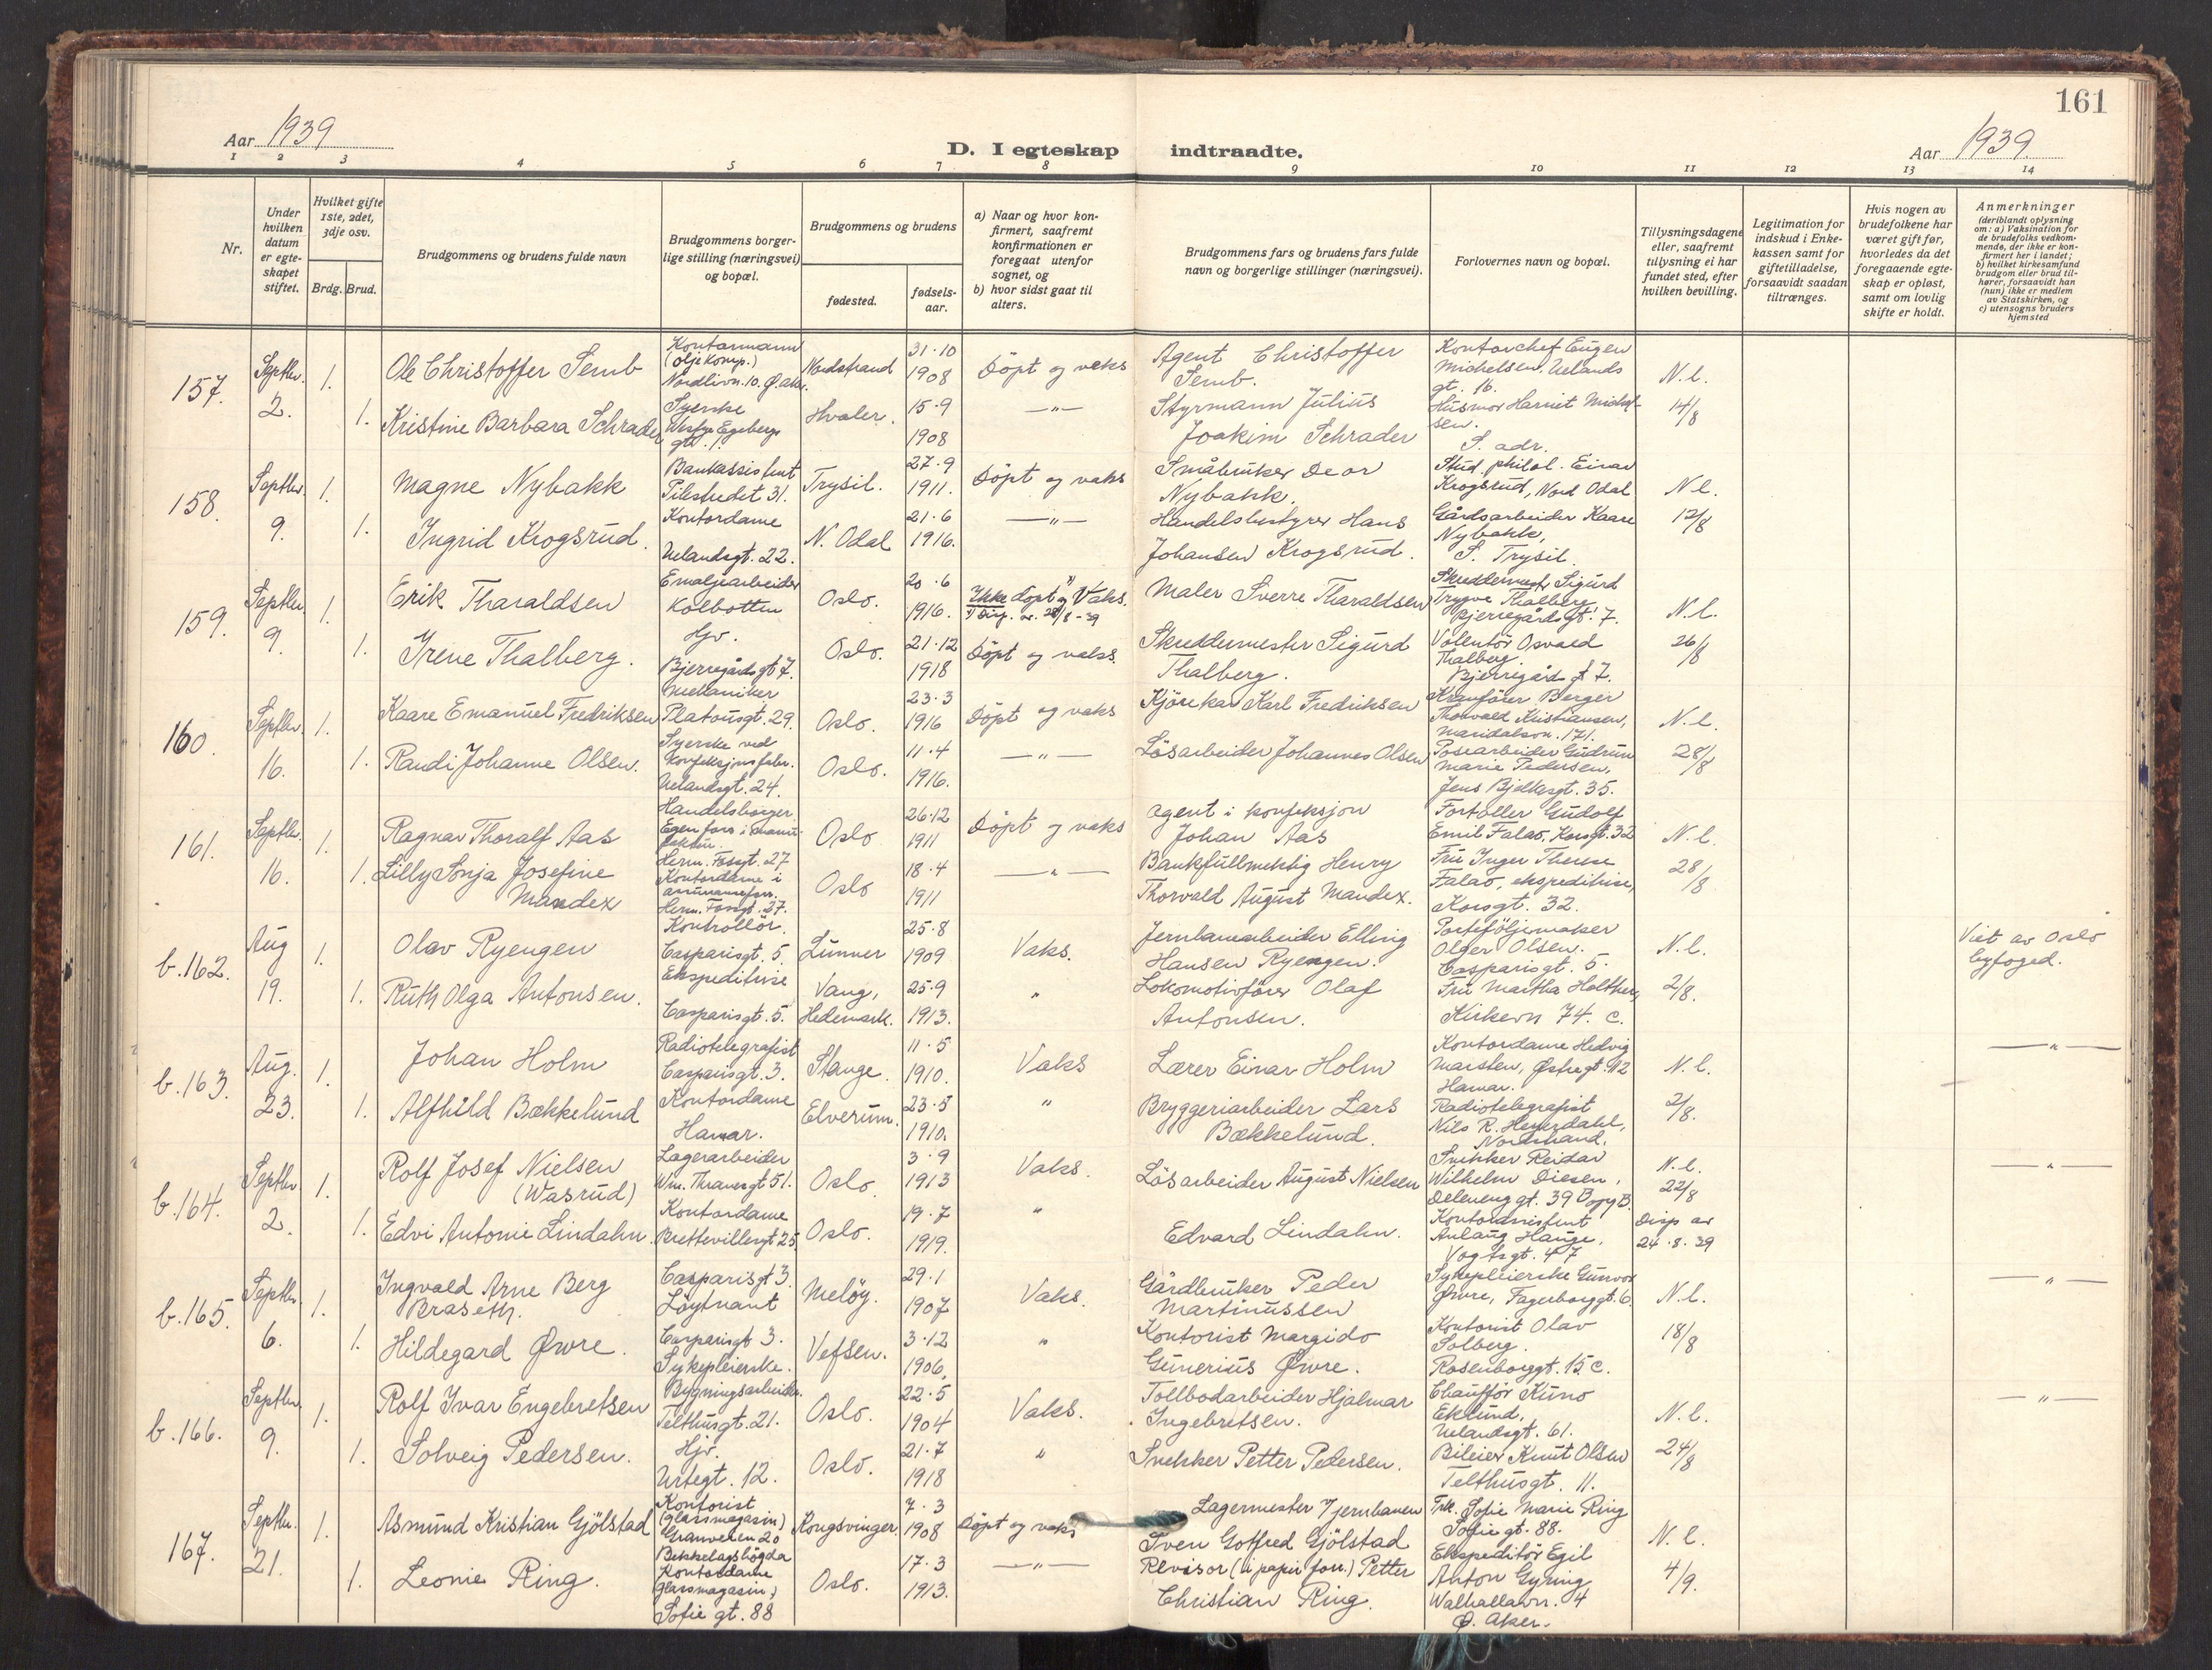 161
Aar 1939
D. I egteskap indtraadte.
Aar 1939.
1 2 3 4 5 6 7 8 9 10 11 12 13 14
Nr.
Under hvilken datum er egteskapet stiftet.
Hvilket gifte 1ste, 2det, 3dje osv.
Brdg. Brud.
Brudgommens og brudens fulde navn
Brudgommens borgerlige stilling (næringsvei) og bopæl.
Brudgommens og brudens
fødested.
fødselsaar.
a) Naar og hvor konfirmert, saafremt konfirmationen er foregaat utenfor sognet, og
b) hvor sidst gaat til alters.
Brudgommens fars og brudens fars fulde navn og borgerlige stillinger (næringsvei).
Forlovernes navn og bopæl.
Tillysningsdagene eller, saafremt tillysning ei har fundet sted, efter hvilken bevilling.
Legitimation for indskud i Enkekassen samt for giftetilladelse, forsaavidt saadan tiltrænges.
Hvis nogen av brudefolkene har været gift før, hvorledes da det foregaaende egteskap er opløst, samt om lovlig skifte er holdt.
Anmerkninger
(deriblandt oplysning om: a) Vaksination for de brudefolks vedkommende, der ikke er konfirmert her i landet; b) hvilket kirkesamfund brudgom eller brud tilhører, forsaavidt han (hun) ikke er medlem av Statskirken, og c) utensogns bruders hjemsted
157. Septbr. 2. 1. Ole Christoffer Semb
Kontormann (Oljekomp.) Nordlivn. 10. Ø. Aker.
Nordstrand 31.10 1908 Döpt og vaks
Agent Christoffer Semb.
Kontorchef Eugen Michelsen, Uelands gt. 16.
N.l. 14/8
1. Kristine Barbara Schrader
Syerske
Hvaler. 15.9 1908 —"—
Styrmann Julius Joakim Schrader
Husmor Harriet Michelsen. S. adr.
158. Septbr. 9. 1. Magne Nybakk
Bankassistent Pilestredet 31.
Trysil. 27.9 1911. Döpt og vaks
Småbruker Deor Nybakk.
Stud. philol. Einar Krogsrud, Nord Odal
N.l. 12/8
1. Ingrid Krogsrud.
Kontordame Uelandsgt. 22.
N. Odal 21.6 1916. —"—
Handelsbestyrer Hans Johansen Krogsrud.
Gårdsarbeider Kaare Nybakk, S. Trysil.
159. Septbr. 9. 1. Erik Tharaldsen
Emaljearbeider Kolbotten
Oslo. 20.6 1916. Ikke döpt og Vaks.
Maler Sverre Tharaldsen
Skreddermestr. Sigurd Trygve Thalberg Bjerregårdsgt. 7.
N.l. 26/8
1. Irene Thalberg.
Hjv. Bjerregårdsgt 7.
Oslo. 21.12 1918 Döpt og vaks.
Skreddermester Sigurd Thalberg.
Volentör Osvald Thalberg. Bjerregårdsgt 7.
160. Septbr. 16. 1. Kaare Emanuel Fredriksen
Mekaniker Platousgt. 29.
Oslo. 23.3 1916 Döpt og vaks
Kjörekar Karl Fredriksen
Kranförer Berger Thorvald Kristiansen, Maridalsvn. 171.
N.l. 28/8
1. Randi Johanne Olsen.
Syerske ved Konfeksjonsfabr. Uelandsgt. 24.
Oslo. 11.4 1916. —"—
Lösarbeider Johannes Olsen
Posearbeider Gudrun Marie Pedersen, Jens Bjelkesgt. 35.
161. Septbr. 16. 1. Ragnar Thoralf Aas
Handelsborger. Egen forr. i manufaktur. Herm. Fossgt. 27
Oslo 26.12 1911 Döpt og vaks
Agent i konfeksjon Johan Aas
Forteller Gudolf Emil Falao, Korsgt. 32
N.l. 28/8
1. Lilly Sonja Josefine Mandex
Kontordame i assuransefor. Herm. Fossgt. 27.
Oslo 18.4 1911 —"—
Bankfullmektig Henry Thorvald August Mandex.
Fru Inger Therese Falao, ekspeditrise, Korsgt. 32.
b.162. Aug 19. 1. Olav Ryengen
Kontrollör. Casparisgt. 5.
Lunner 25.8 1909 Vaks.
Jernbanearbeider Elling Hansen Ryengen.
Porteföljemaker Olger Olsen. Casparisgt. 5.
N.l. 2/8.
Viet av Oslo byfoged.
1. Ruth Olga Antonsen.
Ekspeditrise Casparisgt. 5.
Vang, Hedemark. 25.9 1913. "
Lokomotivförer Olaf Antonsen.
Fru Martha Holther, Kirkevn 74. c.
b.163. Aug. 23. 1. Johan Holm
Radiotelegrafist Casparisgt. 3.
Stange. 11.5 1910. Vaks
Lærer Einar Holm
Kontordame Hedvig Marsten, Østregt. 92 Hamar.
N.l. 2/8. —"—
1. Alfhild Bækkelund
Kontordame Hamar.
Elverum. 23.5 1910. "
Bryggeriarbeider Lars Bækkelund.
Radiotelegrafist Nils R. Heyerdahl, Nordstrand.
b.164. Septbr. 2. 1. Rolf Josef Nielsen (Wasrud)
Lagerarbeider Wm. Thranesgt 51.
Oslo. 3.9 1913 Vaks.
Lösarbeider August Nielsen
Snekker Reidar Wilhelm Diesen, Deleneng gt. 39 Opg B.
N.l. 22/8 —"—
1. Edvi Antonie Lindahn.
Kontordame Brettevillesgt 25
Oslo. 19.7 1919. "
Edvard Lindahn.
Kontorassistent Aslaug Hauge, Vogtsgt. 47
Disp av 24.8.39
b.165. Septbr. 6. 1. Ingvald Arne Berg Braseth.
Casparisgt 3. Löytnant
Meløy. 29.1 1907 Vaks.
Gårdbruker Peder Martinussen
Sykepleierske Gunvor Øwre, Fagerborggt. 6.
N.l. 18/8 —"—
1. Hildegard Øwre.
Casparisgt 3. Sykepleierske.
Vefsen. 3.12 1906, "
Kontorist Margido Gunerius Øwre.
Kontorist Olav Solberg. Rosenborggt. 15 c.
b.166. Septbr. 9. 1. Rolf Ivar Engebretsen
Bygningsarbeider. Telthusgt. 21.
Oslo. 22.5 1904 Vaks.
Tollbodarbeider Hjalmar Ingebretsen.
Chaufför Kuno Eklund, Uelandsgt. 61.
N.l. 24/8 —"—
1. Solveig Pedersen.
Hjv. Urtegt. 12.
Oslo. 21.7 1918 "
Snekker Petter Pedersen.
Bileier Knut Olsen Telthusgt. 11.
167. Septbr. 21. 1. Asmund Kristian Gjölstad
Kontorist (glassmagasin) Granveien 20 Bekkelagshögda
Kongsvinger 7.3 1908 Döpt og vaks
Lagermester v/ jernbanen Sven Gotfred Gjölstad
Frk. Sofie Marie Ring Sofie gt. 88.
N.l. 4/9.
1. Leonie Ring.
Kontordame (glassmagasin) Sofie gt. 88
Oslo. 17.3 1913. —"—
Revisor (i papirforr.) Petter Christian Ring.
Ekspeditör Egil Anton Gyring Walhallavn. 4 Ø. Aker.